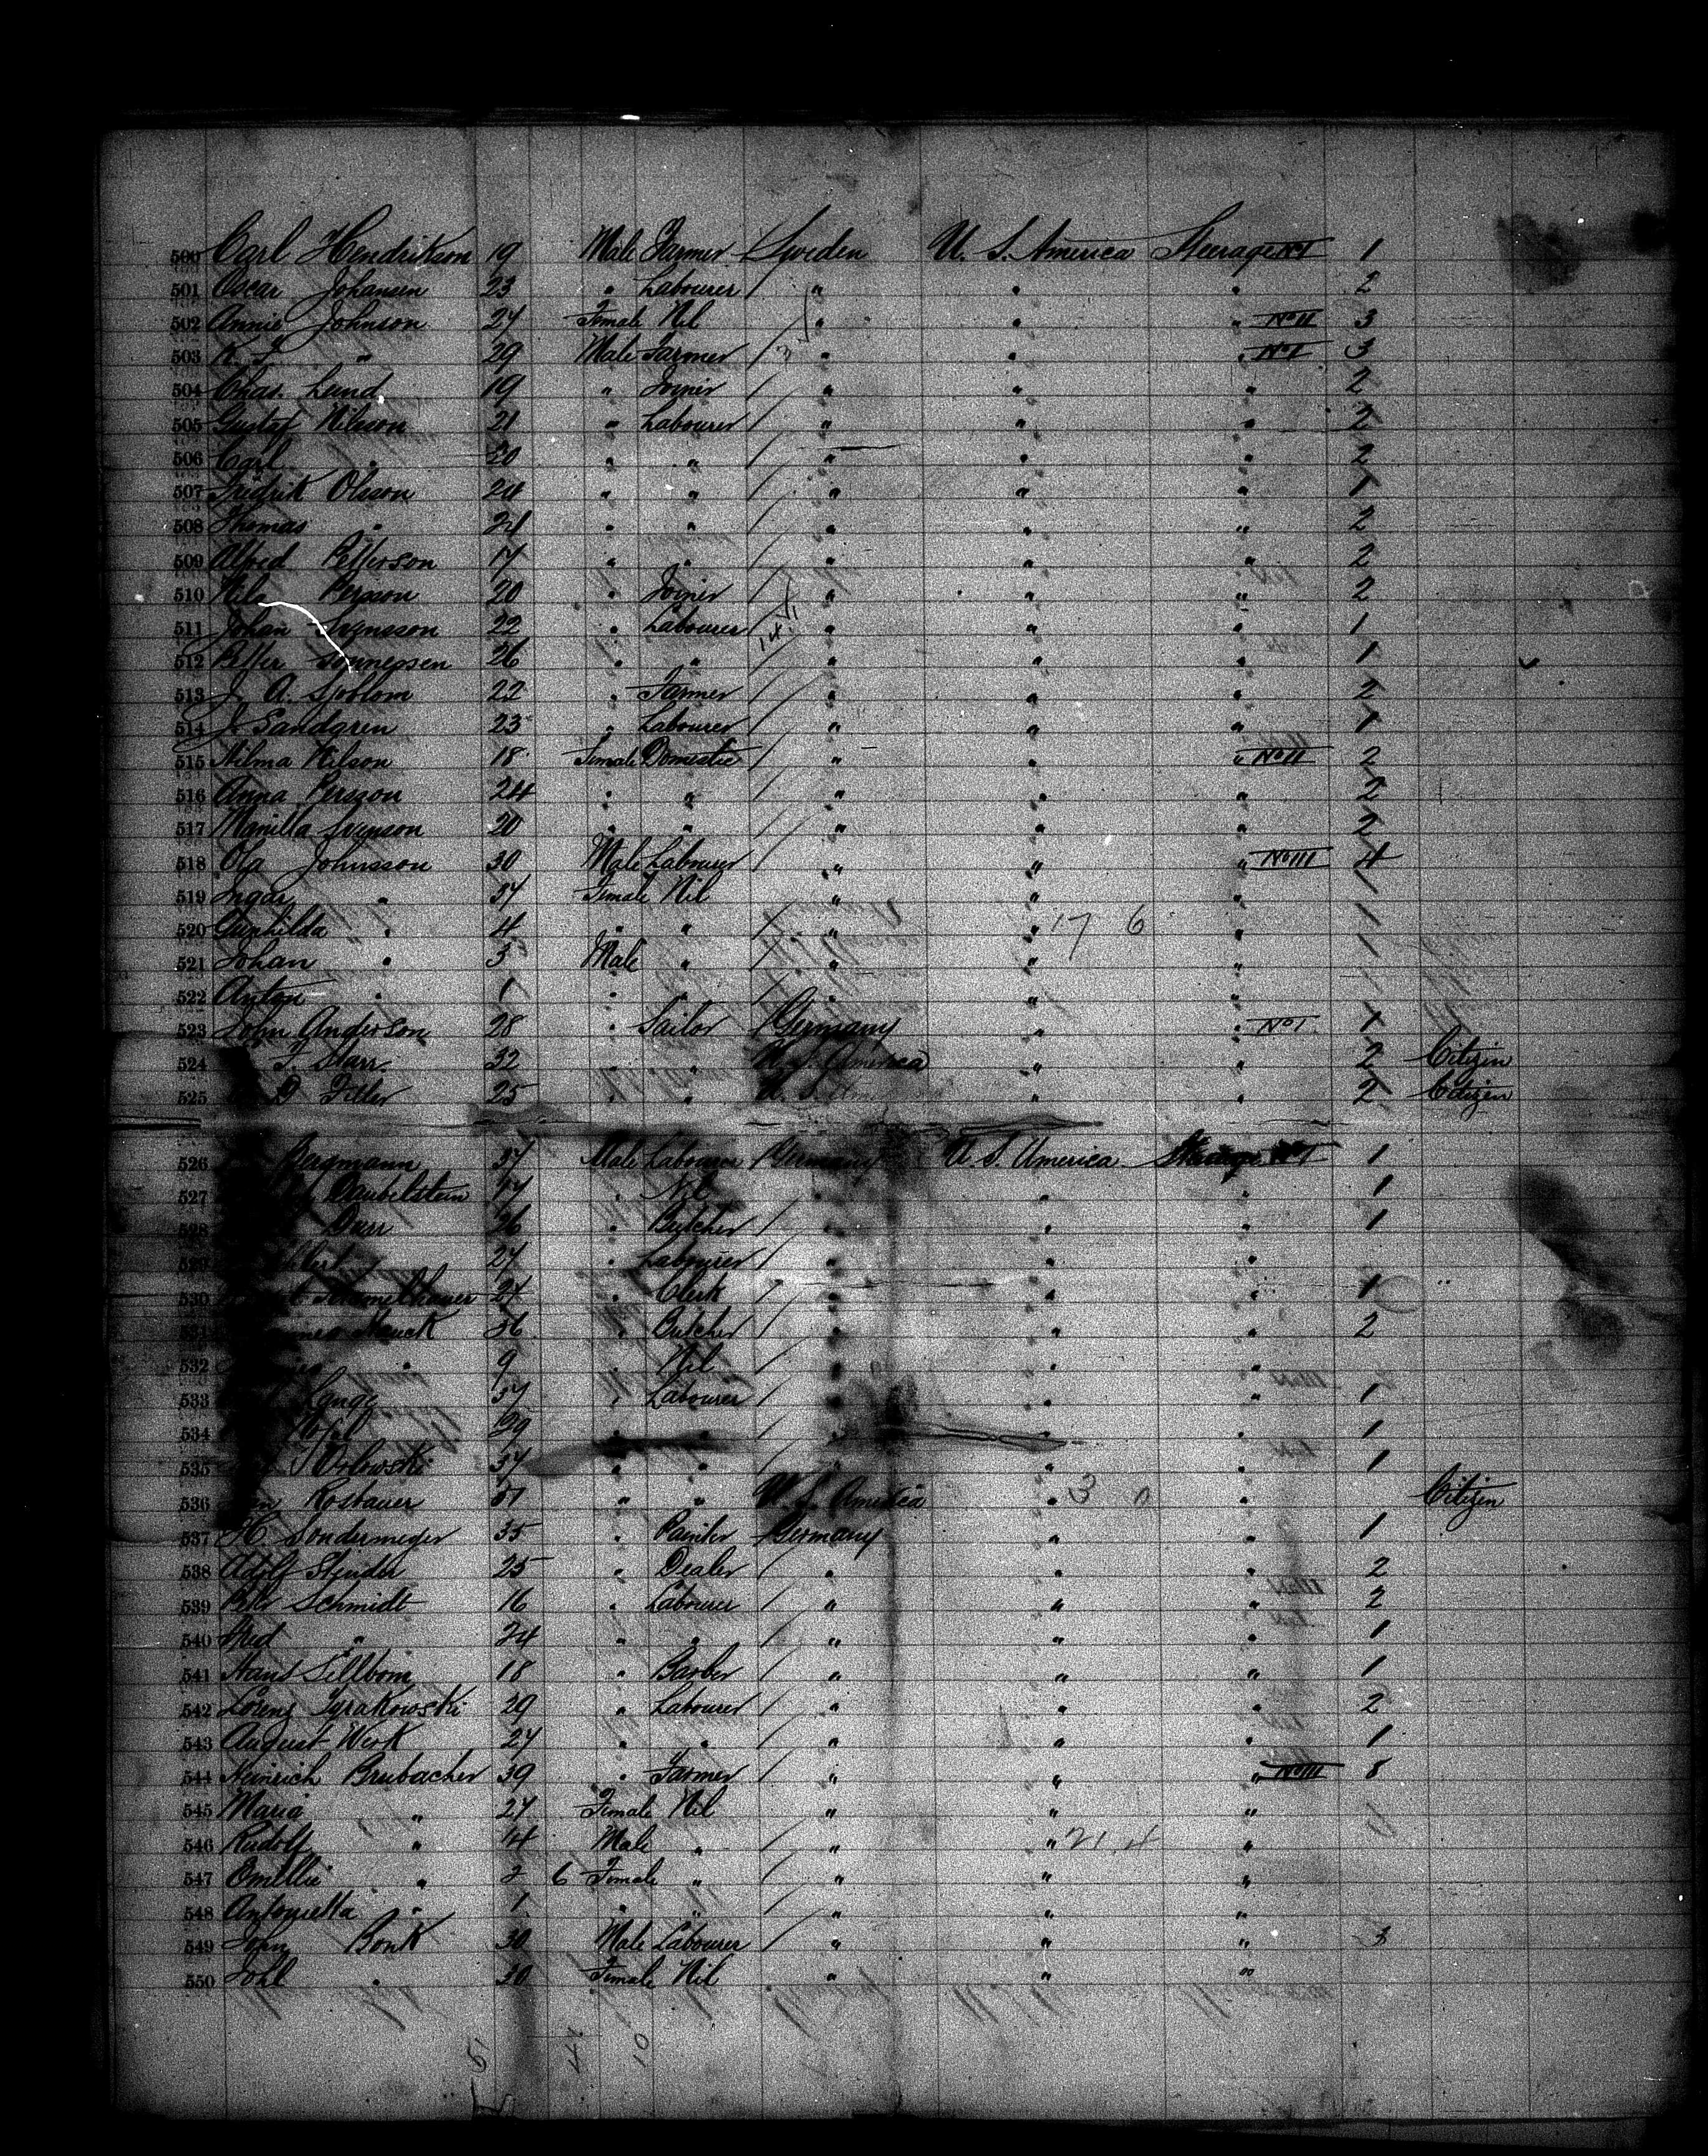 500 Carl Hendrikson 19 Male Farmer Sweden U. S. America Steerage No I 1
501 Oscar Johansen 23 " Labourer / " " " 2
502 Annie Johnson 27 Female Nil " " " No II 3
503 K. J. " 29 Male Farmer / " " " No I 3
504 Chas. Lund 19 " Joiner / " " " 2
505 Gustaf Nilsson 21 " Labourer / " " " 2
506 Carl " 20 " " / " " " 2
507 Fredrik Olsson 24 " " / " " " 1
508 Thomas " 21 " " / " " " 2
509 Alfred Petterson 17 " " / " " " 2
510 Nils Persson 20 " Joiner / " " " 2
511 Johan Svensson 22 " Labourer / " " " 1
512 Petter 26 " " / " " " 1
513 J. A. Sjoblom 22 " Farmer / " " " 2
514 J. Sandgren 23 " Labourer / " " " 1
515 Nilson 18 Female Domestic / " " " No II 2
516 Anna Persson 24 " " / " " " 2
517 Svenson 20 " " / " " " 2
518 Ola Johnsson 30 Male Labourer / " " " No III 4
519 Ingar " 37 Female Nil " " " 1
520 Gunhilda " 4 " " / " " 17 6 " 1
521 Johan " 3 Male " / " " " 1
522 Anton " 1 " " / " " "
523 John Anderson 28 " Sailor / Germany " " No I 1
524 F. Starr 32 " " U. S. America " " 2 Citizen
525 25 " " U. S. " " 2 Citizen
526 Bergmann 37 Male Labourer / Germany U. S. America Steerage No I 1
527 Daubelstein 17 " Nil " " " 1
528 Durr 26 " Butcher / " " " 1
27 " Labourer / " " "
530 27 " Clerk / " " " 1
531 Hauck 36 " Butcher / " " " 2
532 " 9 " Nil / " " "
533 Lange 37 " Labourer / " " " 1
534 29 " " / " " " 1
535 37 " " / " " " 1
536 Rosbauer 37 " " U. S. America " 3 " Citizen
537 H. Sondermeyer 35 " Painter / Germany " " 1
538 Adolf Stinder 25 " Dealer / " " " 2
539 Schmidt 16 " Labourer / " " " 2
540 Fred " 24 " " / " " " 1
541 Hans Sellbom 18 " Barber / " " " 1
542 Lorenz Tyrakowski 29 " Labourer / " " " 2
543 August Work 27 " " / " " " 1
544 Heinrich Brubacher 39 " Farmer / " " " No III 8
545 Maria " 27 Female Nil " " "
546 Rudolf " 14 Male " / " " 21.4 "
547 Omillie " 2 6 Female " / " " "
548 Antonietta " 1 " " / " " "
549 John Bonk 30 Male Labourer / " " " 3
550 " 30 Female Nil " " "